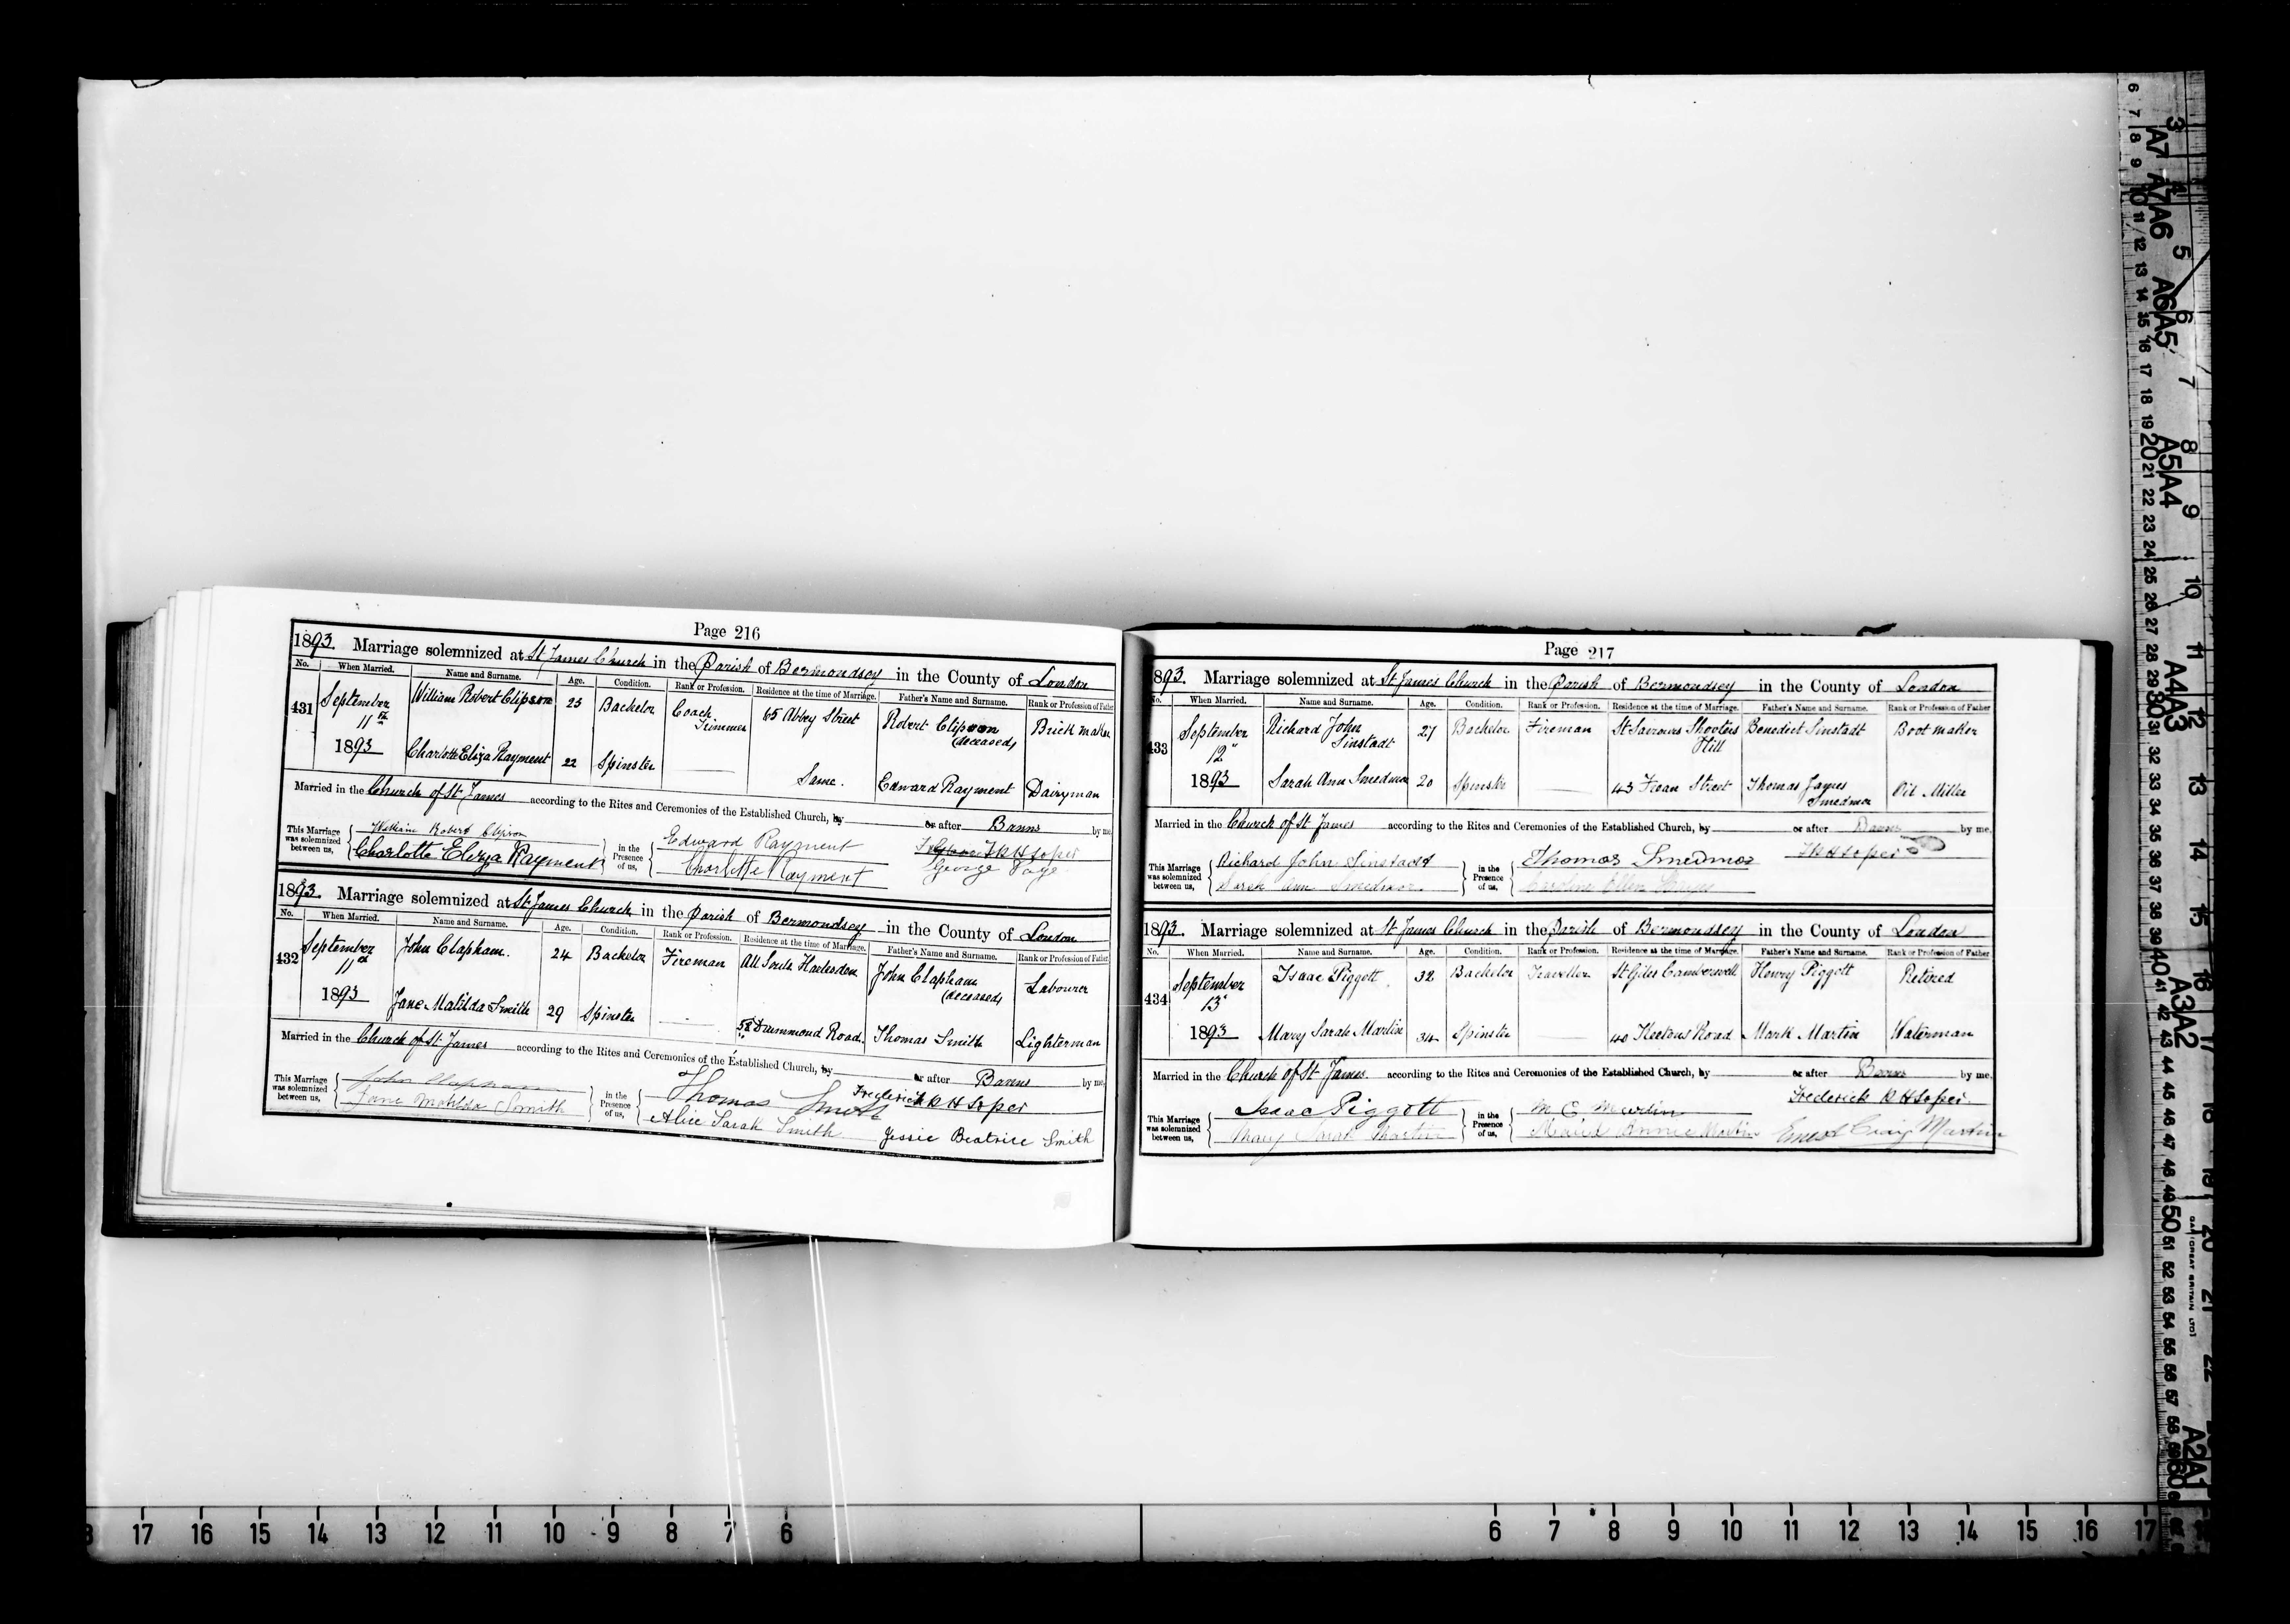 Page 216
1893. Marriage solemnized at St James Church in the Parish of Bermondsey in the County of London
No. When Married. Name and Surname. Age. Condition. Rank or Profession. Residence at the time of Marriage. Father's Name and Surname. Rank or Profession of Father
431 September 11th 1893 William Robert Clipson 23 Bachelor Coach Trimmer 65 Abbey Street Robert Clipson (deceased) Brick maker
Charlotte Eliza Rayment 22 Spinster Same. Edward Rayment Dairyman
Married in the Church of St James according to the Rites and Ceremonies of the Established Church, by or after Banns by me,
This Marriage was solemnized between us, William Robert Clipson in the Presence of us, Edward Rayment FKH Soper
Charlotte Eliza Rayment Charlotte Rayment George Page
1893. Marriage solemnized at St James Church in the Parish of Bermondsey in the County of London
No. When Married. Name and Surname. Age. Condition. Rank or Profession. Residence at the time of Marriage. Father's Name and Surname. Rank or Profession of Father
432 September 11th 1893 John Clapham. 24 Bachelor Fireman All Souls Harlesden John Clapham (deceased) Labourer
Jane Matilda Smith 29 Spinster 58 Drummond Road. Thomas Smith Lighterman
Married in the Church of St James according to the Rites and Ceremonies of the Established Church, by or after Banns by me,
This Marriage was solemnized between us, John Clapham in the Presence of us, Thomas Smith Frederick KH Soper
Jane Matilda Smith Alice Sarah Smith Jessie Beatrice Smith
Page 217
1893. Marriage solemnized at St James Church in the Parish of Bermondsey in the County of London
No. When Married. Name and Surname. Age. Condition. Rank or Profession. Residence at the time of Marriage. Father's Name and Surname. Rank or Profession of Father
433 September 12" 1893 Richard John Sinstadt 27 Bachelor Fireman St Saviours Shooters Hill Benedict Sinstadt Boot maker
Sarah Ann Smedmor 20 Spinster 43 Frean Street Thomas James Smedmor Oil Miller
Married in the Church of St James according to the Rites and Ceremonies of the Established Church, by or after Banns by me,
This Marriage was solemnized between us, Richard John Sinstadt in the Presence of us, Thomas Smedmor FKH Soper
Sarah Ann Smedmor Caroline Ellen
1893. Marriage solemnized at St James Church in the Parish of Bermondsey in the County of London
No. When Married. Name and Surname. Age. Condition. Rank or Profession. Residence at the time of Marriage. Father's Name and Surname. Rank or Profession of Father
434 September 13" 1893 Isaac Piggott 32 Bachelor Traveller St Giles Camberwell Henry Piggott Retired
Mary Sarah Martin 34 Spinster 40 Keetons Road Mark Martin Waterman
Married in the Church of St James. according to the Rites and Ceremonies of the Established Church, by or after Banns by me,
This Marriage was solemnized between us, Isaac Piggott in the Presence of us, M. E. Frederick KH Soper.
Mary Sarah Martin Annie Martin Ernest Craig Martin